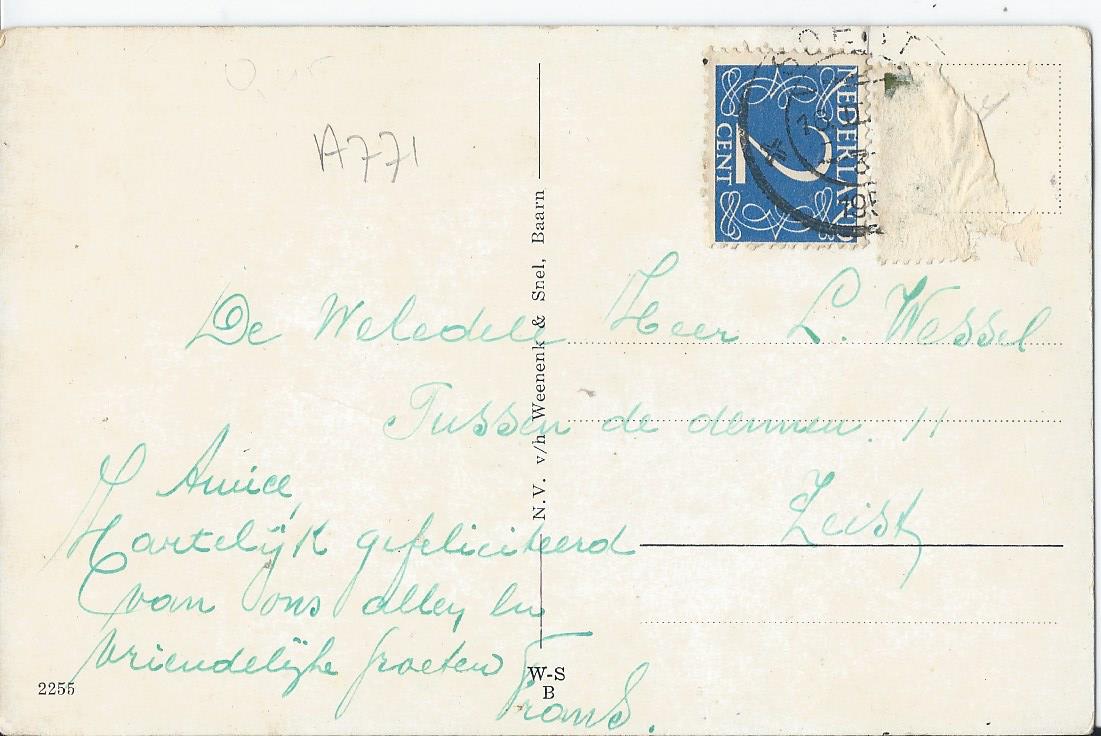 A771
NEDERLAND
2 CENT
De Weledele Heer L. Wessel
Tussen de dennen. 11
Zeist
Amice,
Hartelijk gefeliciteerd
van ons allen en
vriendelijke groeten
Frans.
N.V. v/h Weenenk & Snel, Baarn
2255
W-S
B